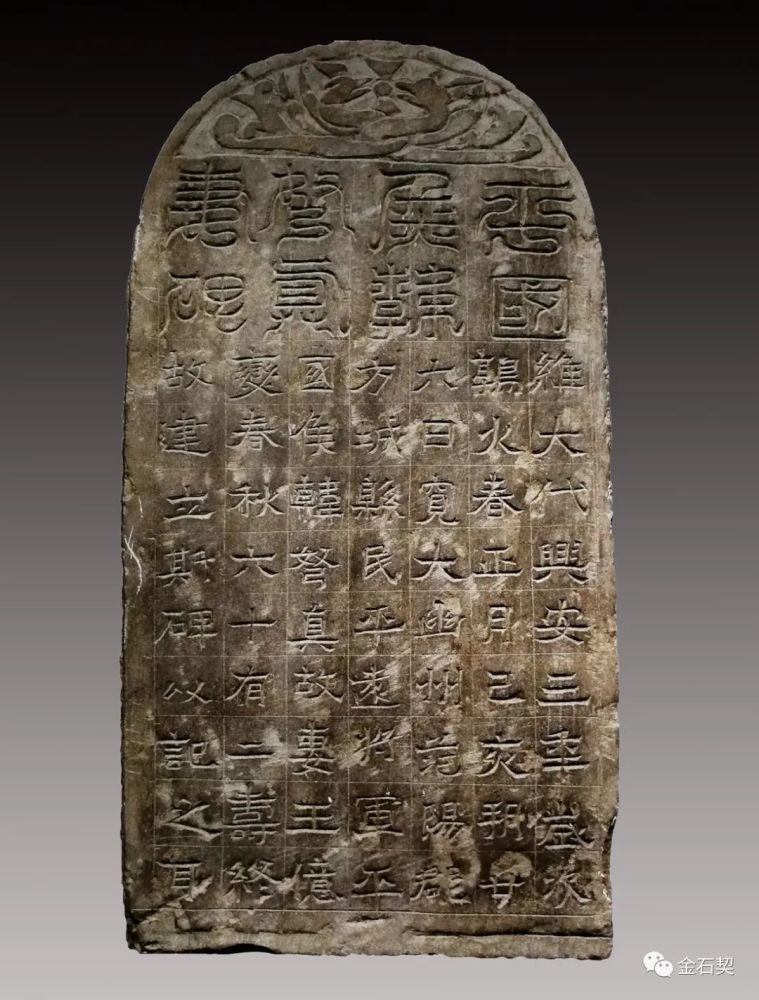 平國
侯韓
弩真
妻碑
維大代興安三年歲次
鶉火春正月己亥朔廿
六日寬大幽州范陽郡
方城縣民平遠將軍平
國侯韓弩真故妻王億
變春秋六十有二壽終
故建立斯碑以記之耳
金石契